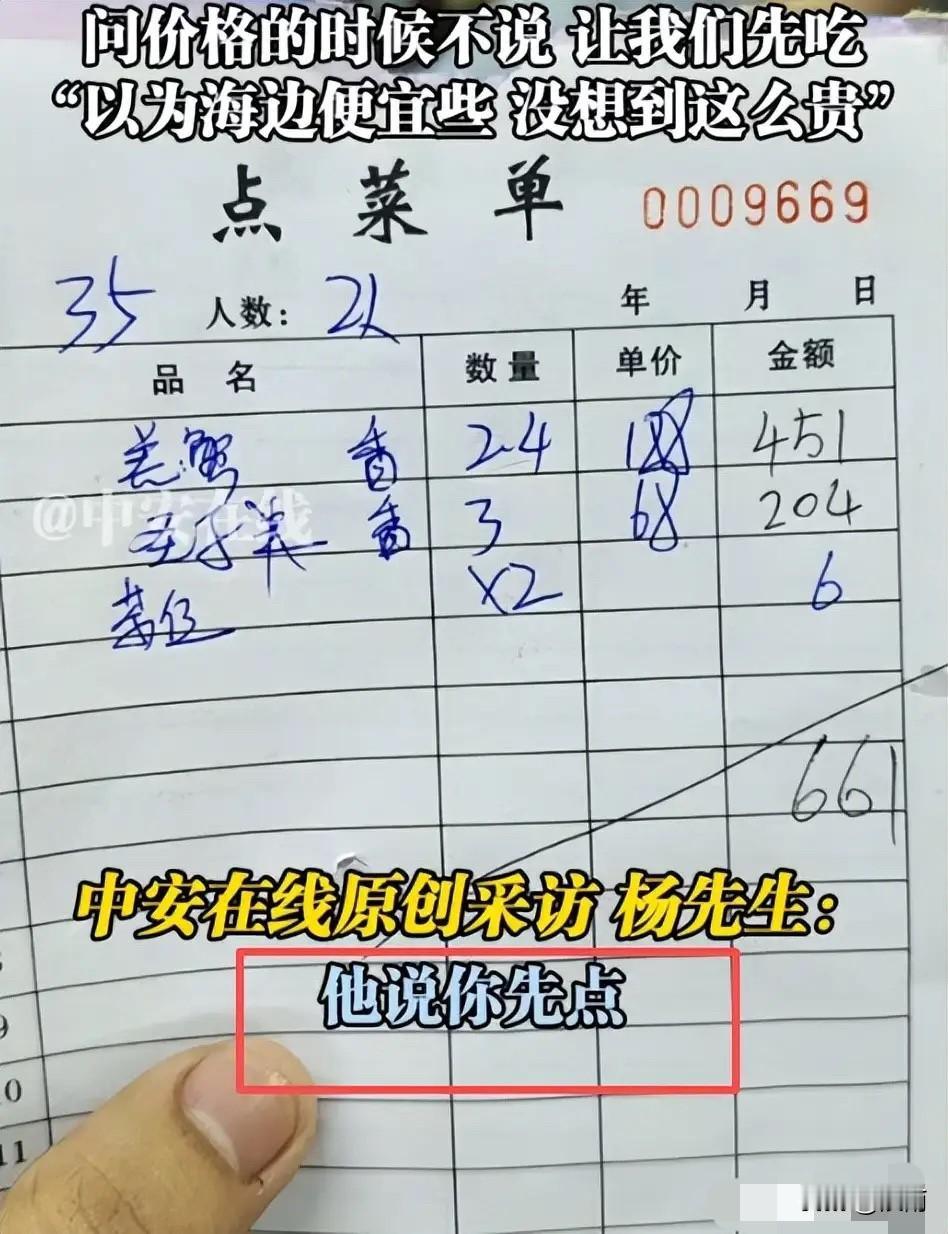 问价格的时候不说 让我们先吃
“以为海边便宜些 没想到这么贵”
点菜单 0009669
35 人数: 2人 年 月 日
品名 数量 单价 金额
羔蟹 香 2.4 188 451
@中安在线
香 3 68 204
茶位 x2 6
661
中安在线原创采访 杨先生:
他说你先点
9
10
11